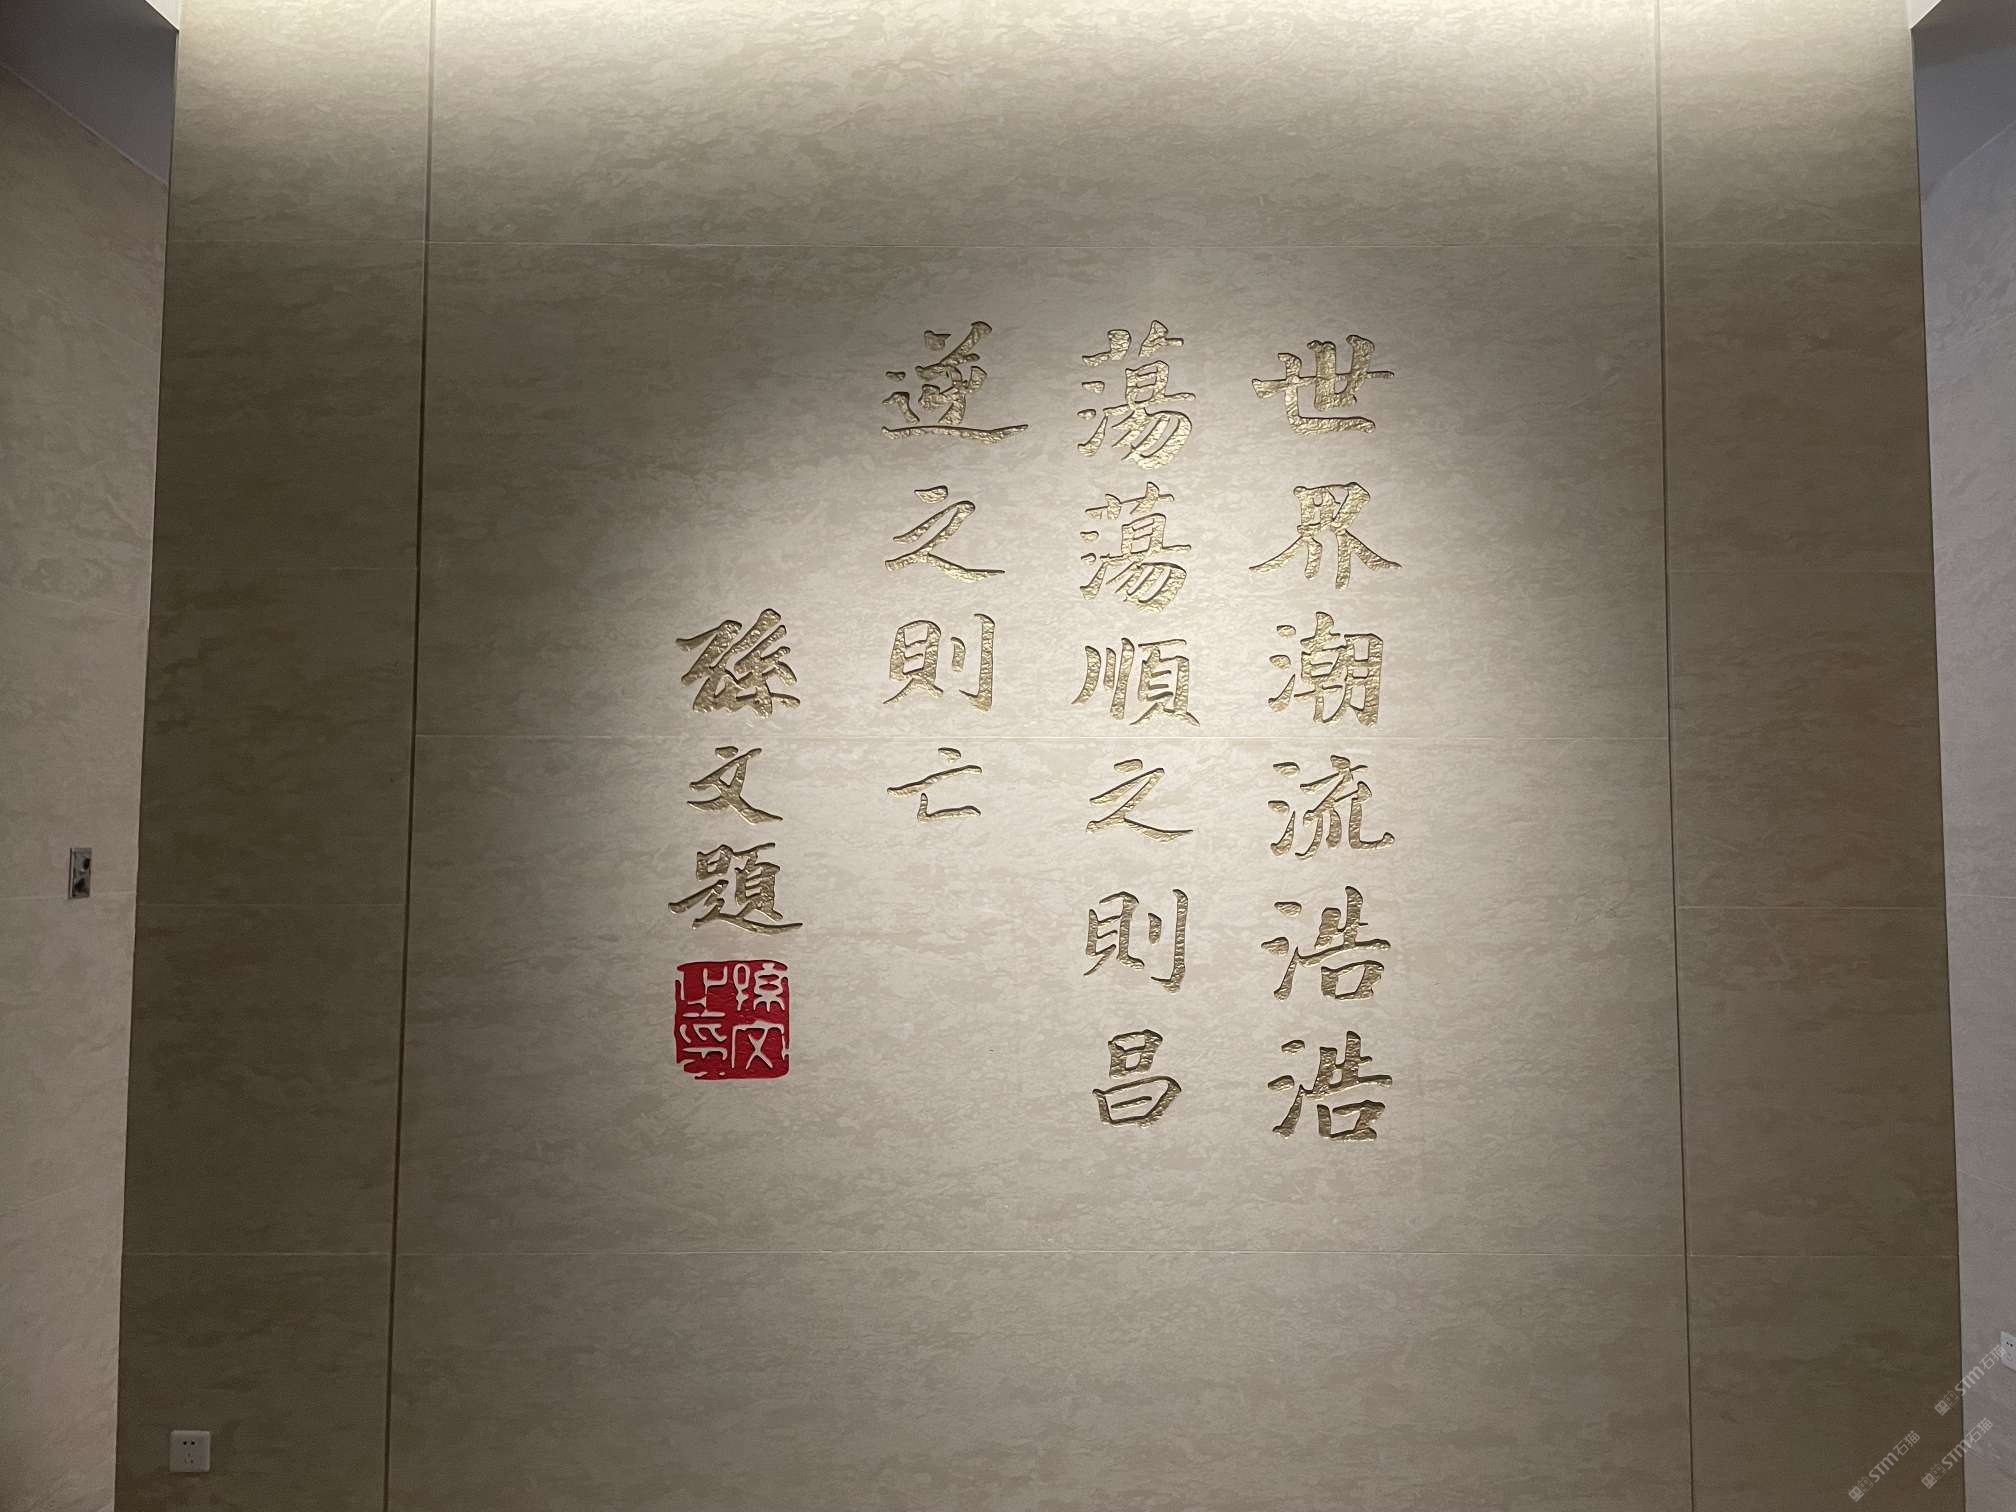 世界潮流浩浩
蕩蕩順之則昌
逆之則亡
孫文題
孫文之印
STM石猫
STM石猫
STM石猫